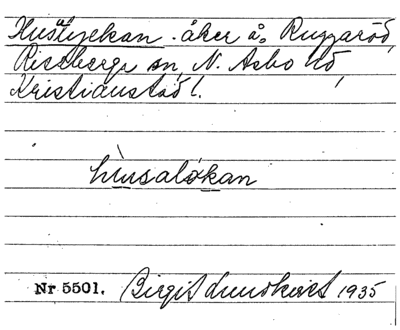 Hustyckan. åker å Ruggaröd,
Riseberga sn, N. Åsbo hd,
Kristianstad l.
hùsalókan
Nr 5501. Birgit Lundkvist 1935